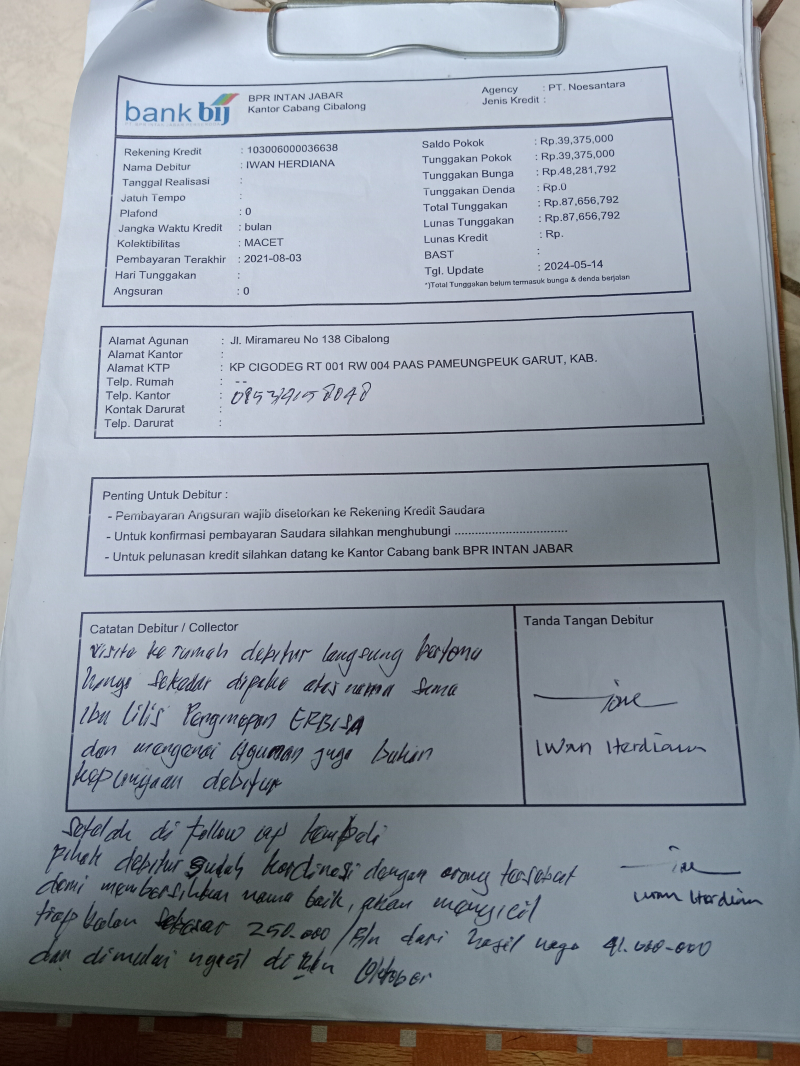 bank bij
BPR INTAN JABAR
Kantor Cabang Cibalong
Agency : PT. Noesantara
Jenis Kredit :
Rekening Kredit : 103006000036638
Nama Debitur : IWAN HERDIANA
Tanggal Realisasi :
Jatuh Tempo :
Plafond : 0
Jangka Waktu Kredit : bulan
Kolektibilitas : MACET
Pembayaran Terakhir : 2021-08-03
Hari Tunggakan :
Angsuran : 0
Saldo Pokok : Rp.39,375,000
Tunggakan Pokok : Rp.39,375,000
Tunggakan Bunga : Rp.48,281,792
Tunggakan Denda : Rp.0
Total Tunggakan : Rp.87,656,792
Lunas Tunggakan : Rp.87,656,792
Lunas Kredit : Rp.
BAST :
Tgl. Update : 2024-05-14
*)Total Tunggakan belum termasuk bunga & denda berjalan
Alamat Agunan : Jl. Miramareu No 138 Cibalong
Alamat Kantor :
Alamat KTP : KP CIGODEG RT 001 RW 004 PAAS PAMEUNGPEUK GARUT, KAB.
Telp. Rumah : --
Telp. Kantor :
Kontak Darurat :
Telp. Darurat :
Penting Untuk Debitur :
- Pembayaran Angsuran wajib disetorkan ke Rekening Kredit Saudara
- Untuk konfirmasi pembayaran Saudara silahkan menghubungi ..................................
- Untuk pelunasan kredit silahkan datang ke Kantor Cabang bank BPR INTAN JABAR
Catatan Debitur / Collector
Visite ke rumah debitur langsung bertemu
hanya sekedar dipake atas nama sama
Ibu Lilis Penginapan ERBISA
dan mengenai Agunan juga bukan
kepunyaan debitur
Tanda Tangan Debitur
Iwan Herdiana
Setelah di follow up kembali
pihak debitur sudah kordinasi dengan orang tersebut
demi membersihkan nama baik, akan mengicil
Iwan Herdian
tiap bulan sebesar 250.000 /Bln dari hasil nego 41.000.000
dan dimulai ngicil di bln Oktober